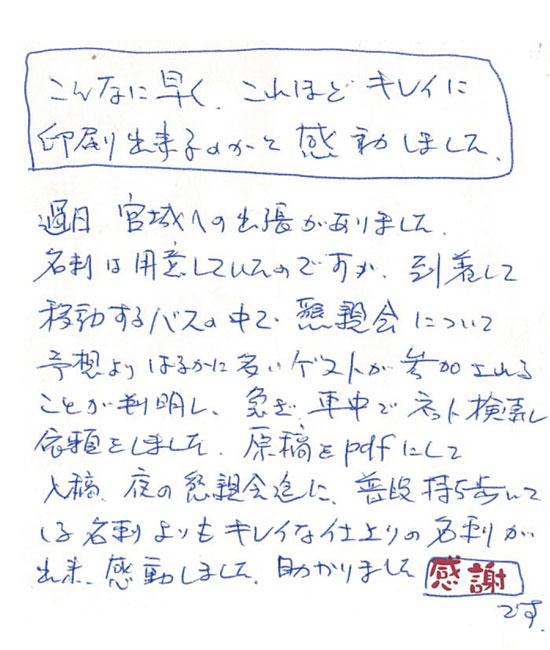 こんなに早く、これほどキレイに
印刷出来るのかと感動しました。
過日 宮城への出張がありました。
名刺は用意していたのですが、到着して
移動するバスの中で懇親会について
予想よりはるかに多いゲストが参加される
ことが判明し、急ぎ、車中でネット検索し
依頼をしました。原稿をpdfにして
入稿、夜の懇親会迄に、普段持ち歩いて
いる名刺よりもキレイな仕上りの名刺が
出来、感動しました。助かりました 感謝
です。